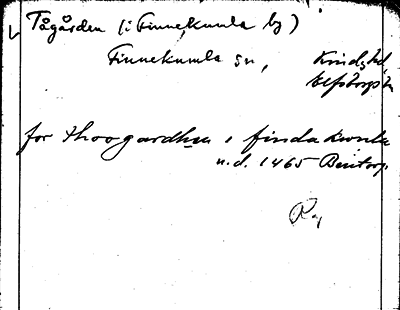 Tågården (i Finnekumla by)
Finnekumla sn, Kinds hd
Älfsborgs l.
for thoogardhen i finda kwmla
u.d. 1465